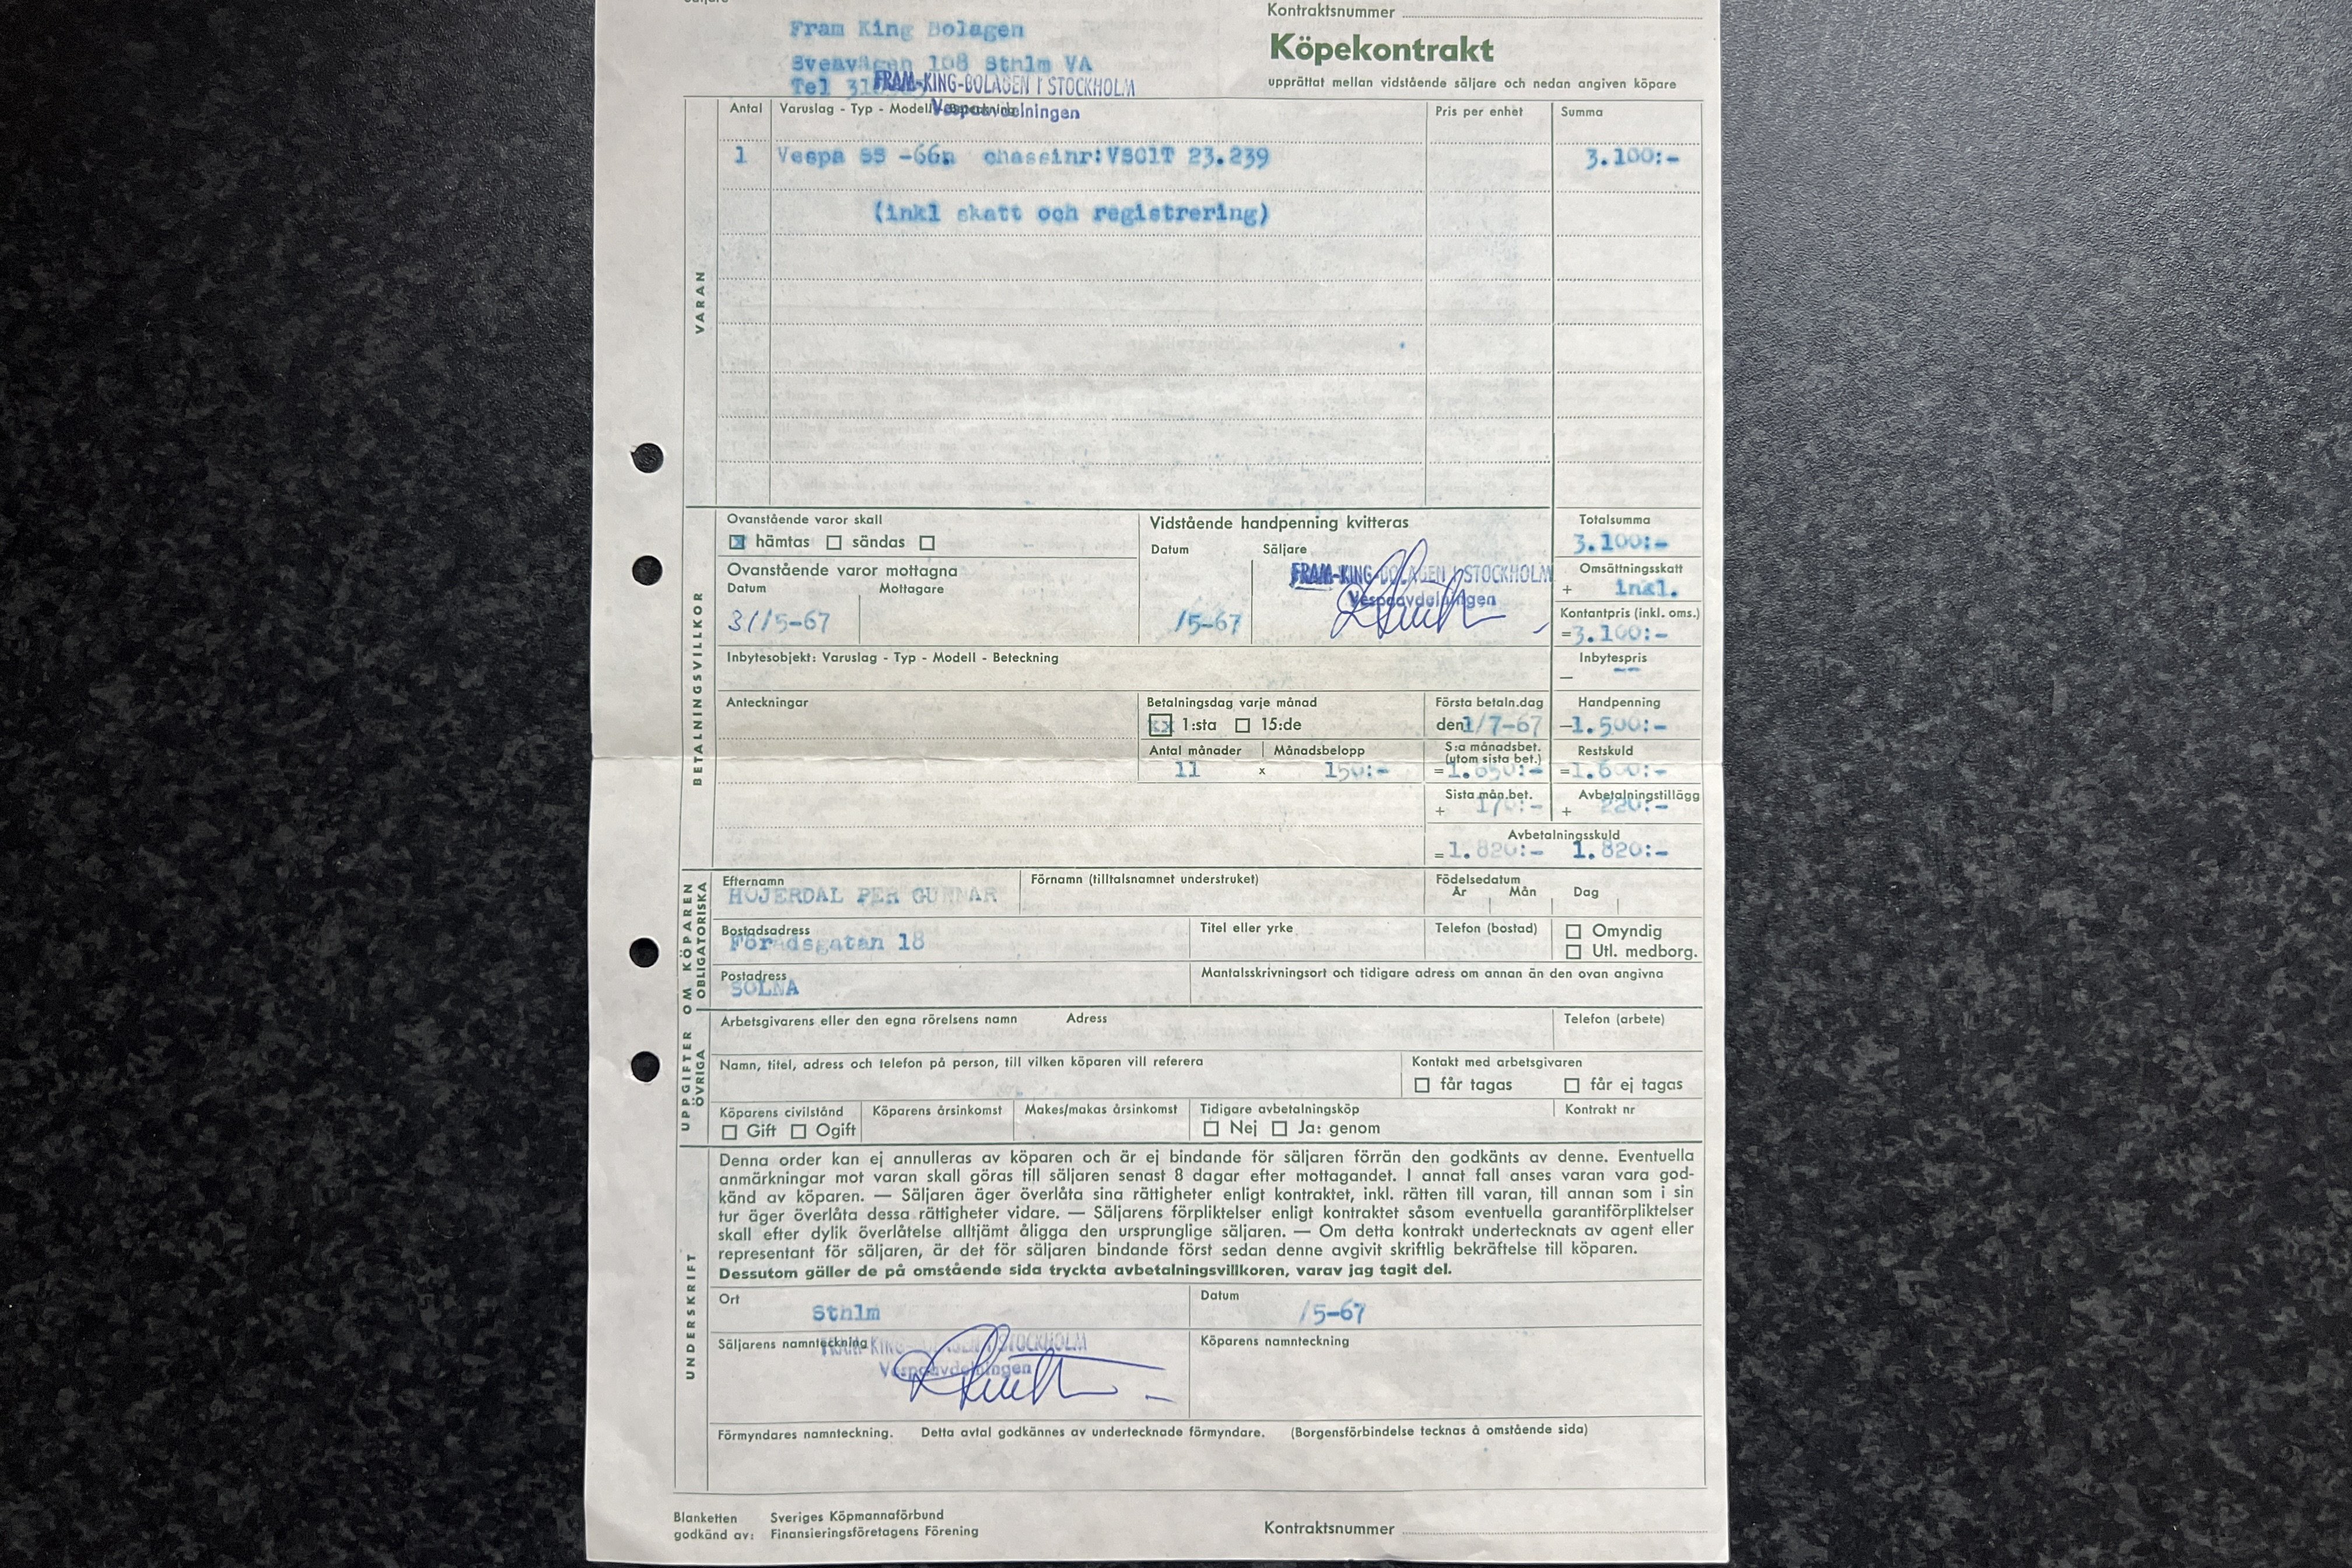 Säljare
Kontraktsnummer
Fram King Bolagen
Köpekontrakt
Sveavägen 108 Sthlm VA
upprättat mellan vidstående säljare och nedan angiven köpare
Tel
FRAM-KING-BOLAGEN I STOCKHOLM
Vespaavdelningen
Antal Varuslag - Typ - Modell - Pris per enhet Summa
1 Vespa SS -66a chassinr:VSC1T 23.239 3.100:-
(inkl skatt och registrering)
VARAN
Ovanstående varor skall
hämtas sändas
Vidstående handpenning kvitteras
Datum Säljare
FRAM-KING-BOLAGEN I STOCKHOLM
Vespaavdelningen
/5-67
Totalsumma
3.100:-
Omsättningsskatt
+ inkl.
Kontantpris (inkl. oms.)
=3.100:-
Ovanstående varor mottagna
Datum Mottagare
31/5-67
Inbytesobjekt: Varuslag - Typ - Modell - Beteckning
Inbytespris
— --
BETALNINGSVILLKOR
Anteckningar
Betalningsdag varje månad
xx 1:sta 15:de
Första betaln.dag
den 1/7-67
Handpenning
—1.500:-
Antal månader Månadsbelopp
11 x 150:-
S:a månadsbet.
(utom sista bet.)
=1.650:-
Restskuld
=1.600:-
Sista mån.bet.
+ 170:-
Avbetalningstillägg
+ 220:-
Avbetalningsskuld
=1.820:- 1.820:-
UPPGIFTER OM KÖPAREN
OBLIGATORISKA
ÖVRIGA
Efternamn Förnamn (tilltalsnamnet understruket) Födelsedatum
År Mån Dag
HÖJERDAL PER GUNNAR
Bostadsadress Titel eller yrke Telefon (bostad)
18
Omyndig
Utl. medborg.
Postadress Mantalsskrivningsort och tidigare adress om annan än den ovan angivna
SOLNA
Arbetsgivarens eller den egna rörelsens namn Adress Telefon (arbete)
Namn, titel, adress och telefon på person, till vilken köparen vill referera Kontakt med arbetsgivaren
får tagas får ej tagas
Köparens civilstånd Köparens årsinkomst Makes/makas årsinkomst Tidigare avbetalningsköp Kontrakt nr
Gift Ogift Nej Ja: genom
UNDERSKRIFT
Denna order kan ej annulleras av köparen och är ej bindande för säljaren förrän den godkänts av denne. Eventuella
anmärkningar mot varan skall göras till säljaren senast 8 dagar efter mottagandet. I annat fall anses varan vara god-
känd av köparen. — Säljaren äger överlåta sina rättigheter enligt kontraktet, inkl. rätten till varan, till annan som i sin
tur äger överlåta dessa rättigheter vidare. — Säljarens förpliktelser enligt kontraktet såsom eventuella garantiförpliktelser
skall efter dylik överlåtelse alltjämt åligga den ursprunglige säljaren. — Om detta kontrakt undertecknats av agent eller
representant för säljaren, är det för säljaren bindande först sedan denne avgivit skriftlig bekräftelse till köparen.
Dessutom gäller de på omstående sida tryckta avbetalningsvillkoren, varav jag tagit del.
Ort Datum
Sthlm /5-67
Säljarens namnteckning Köparens namnteckning
FRAM-KING-BOLAGEN I STOCKHOLM
Vespaavdelningen
Förmyndares namnteckning. Detta avtal godkännes av undertecknade förmyndare. (Borgensförbindelse tecknas å omstående sida)
Blanketten Sveriges Köpmannaförbund
godkänd av: Finansieringsföretagens Förening
Kontraktsnummer